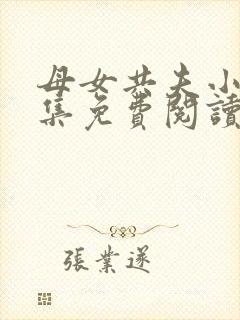 母女共夫小
集免費閱讀
張業遂